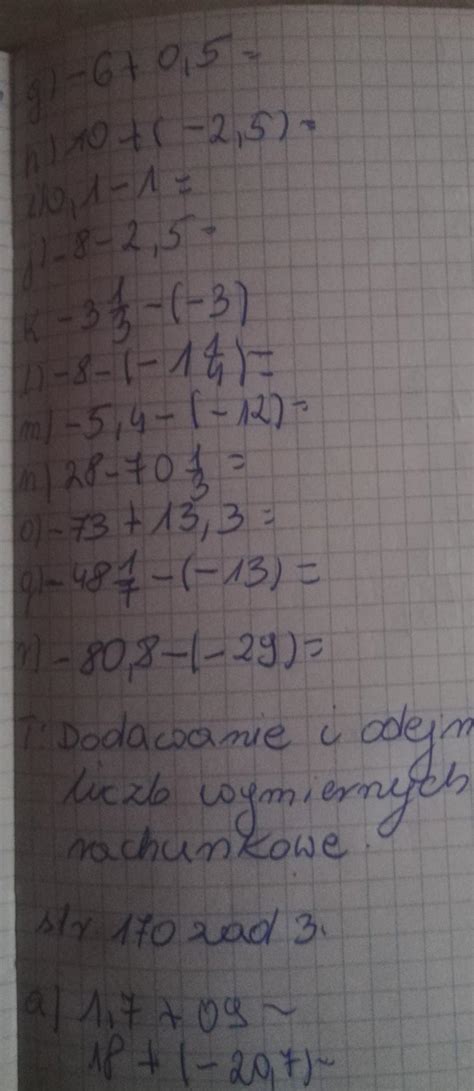 g) -6+0,5=
h) 10+(-2,5)=
i) 0,1-1=
j) -8-2,5=
k -3 1/3 -(-3)
l) -8-(-1 1/4)=
m) -5,4-(-12)=
n) 28-70 1/3 =
o) -73+13,3=
q) -48 1/7 -(-13)=
r) -80,8-(-29)=
T: Dodawanie i odejm
liczb wymiernych
rachunkowe.
str 170 zad 3.
a) 1,7+09
18+(-20,7)